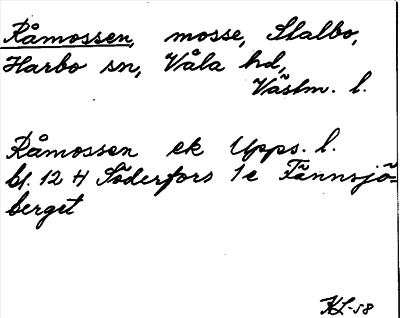 Råmossen, mosse, Stalbo,
Harbo sn, Våla hd,
Västm. l.
Råmossen ek Upps. l.
bl. 12 H Söderfors 1e Tännsjö-
berget
KL-58